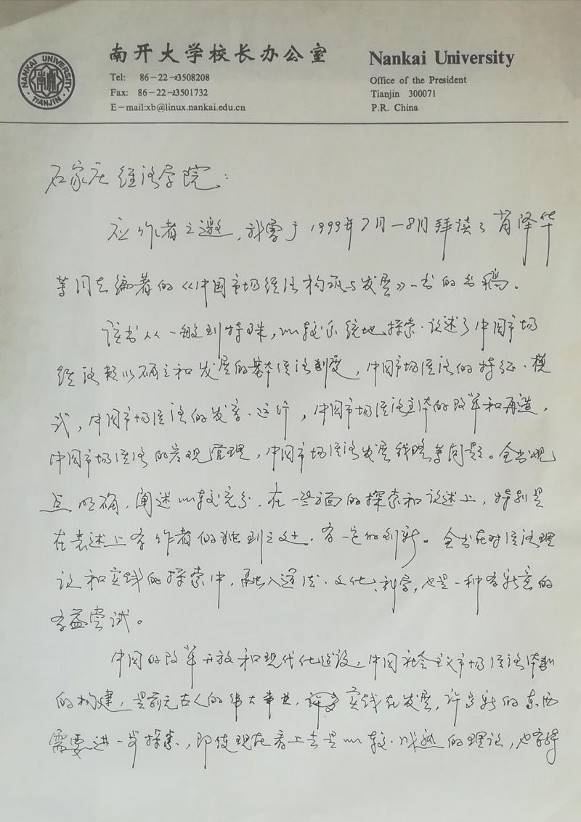 南开大学校长办公室
Tel: 86-22-23508208
Fax: 86-22-23501732
E-mail:xb@linux.nankai.edu.cn
Nankai University
Office of the President
Tianjin 300071
P.R. China
NANKAI UNIVERSITY
TIANJIN
石家庄经济学院:
应作者之邀,我曾于1999年7月—8月拜读了肖泽华
等同志编著的《中国市场经济构筑与发展》一书的书稿。
该书从一般到特殊,比较系统地探索、论述了中国市场
经济赖以确立和发展的基本经济制度,中国市场经济的特征、模
式,中国市场经济的发育、运行,中国市场经济主体的改革和再造,
中国市场经济的宏观管理,中国市场经济发展战略等问题。全书观
点明确,阐述比较充分,在一些方面的探索和论述上,特别是
在表述上有作者的独到之处,有一定的创新。全书在对经济理
论和实践的探索中,融入道德、文化、科学,也是一种有新意的
有益尝试。
中国的改革开放和现代化建设,中国社会主义市场经济体制
的构建,是前无古人的伟大事业,许多实践在发展,许多新的东西
需要进一步探索,即使现在看上去是比较成熟的理论,也有待